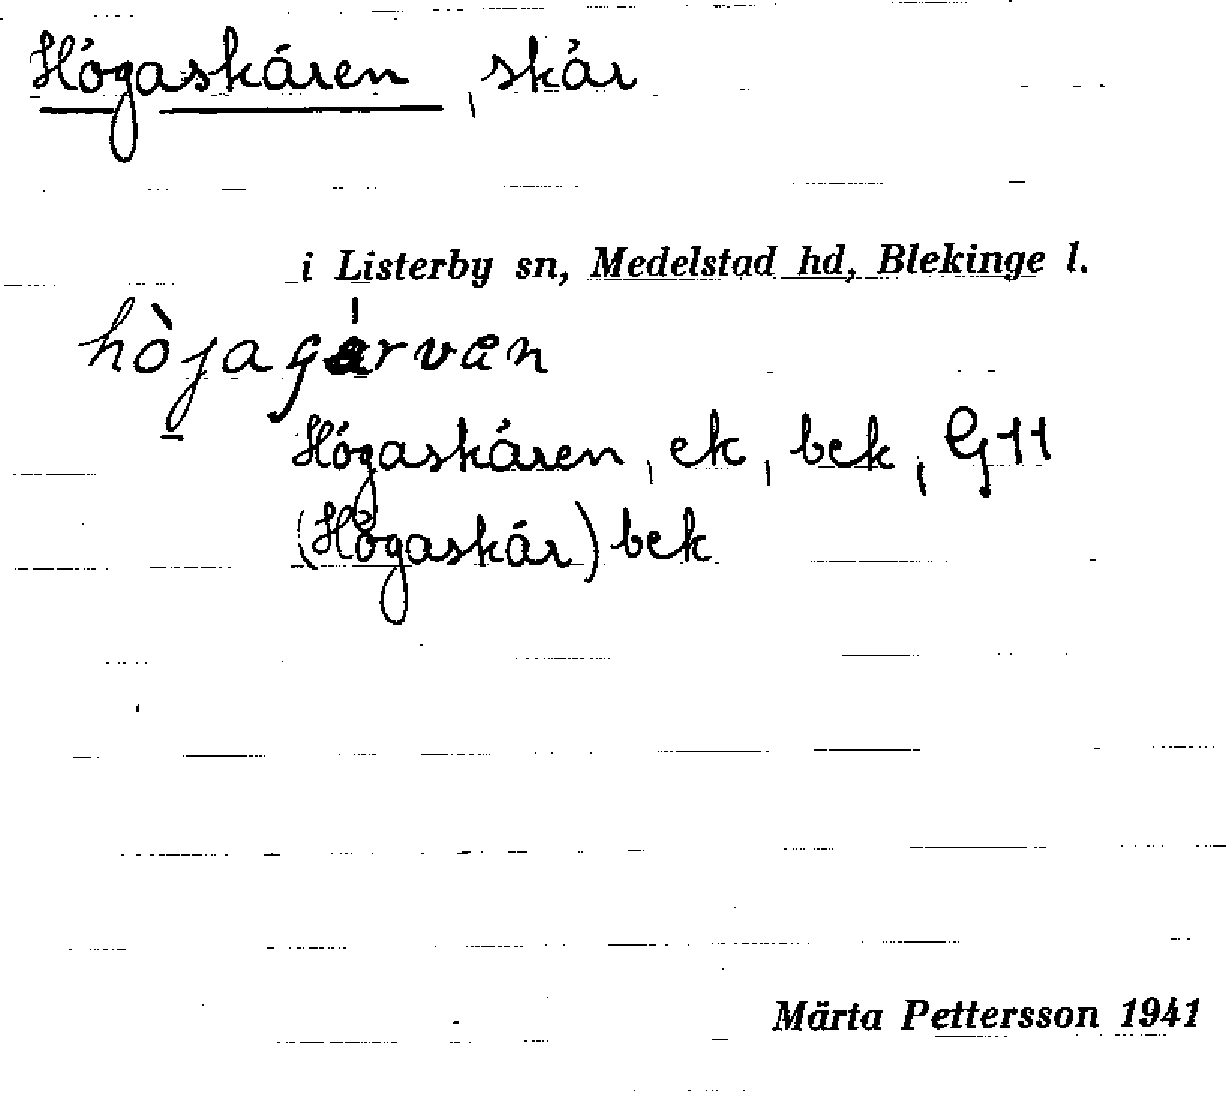 Högaskären, skär
i Listerby sn, Medelstad hd, Blekinge l.
Högaskären, ek, bek, G 11
(Högaskär) bek
Märta Pettersson 1941